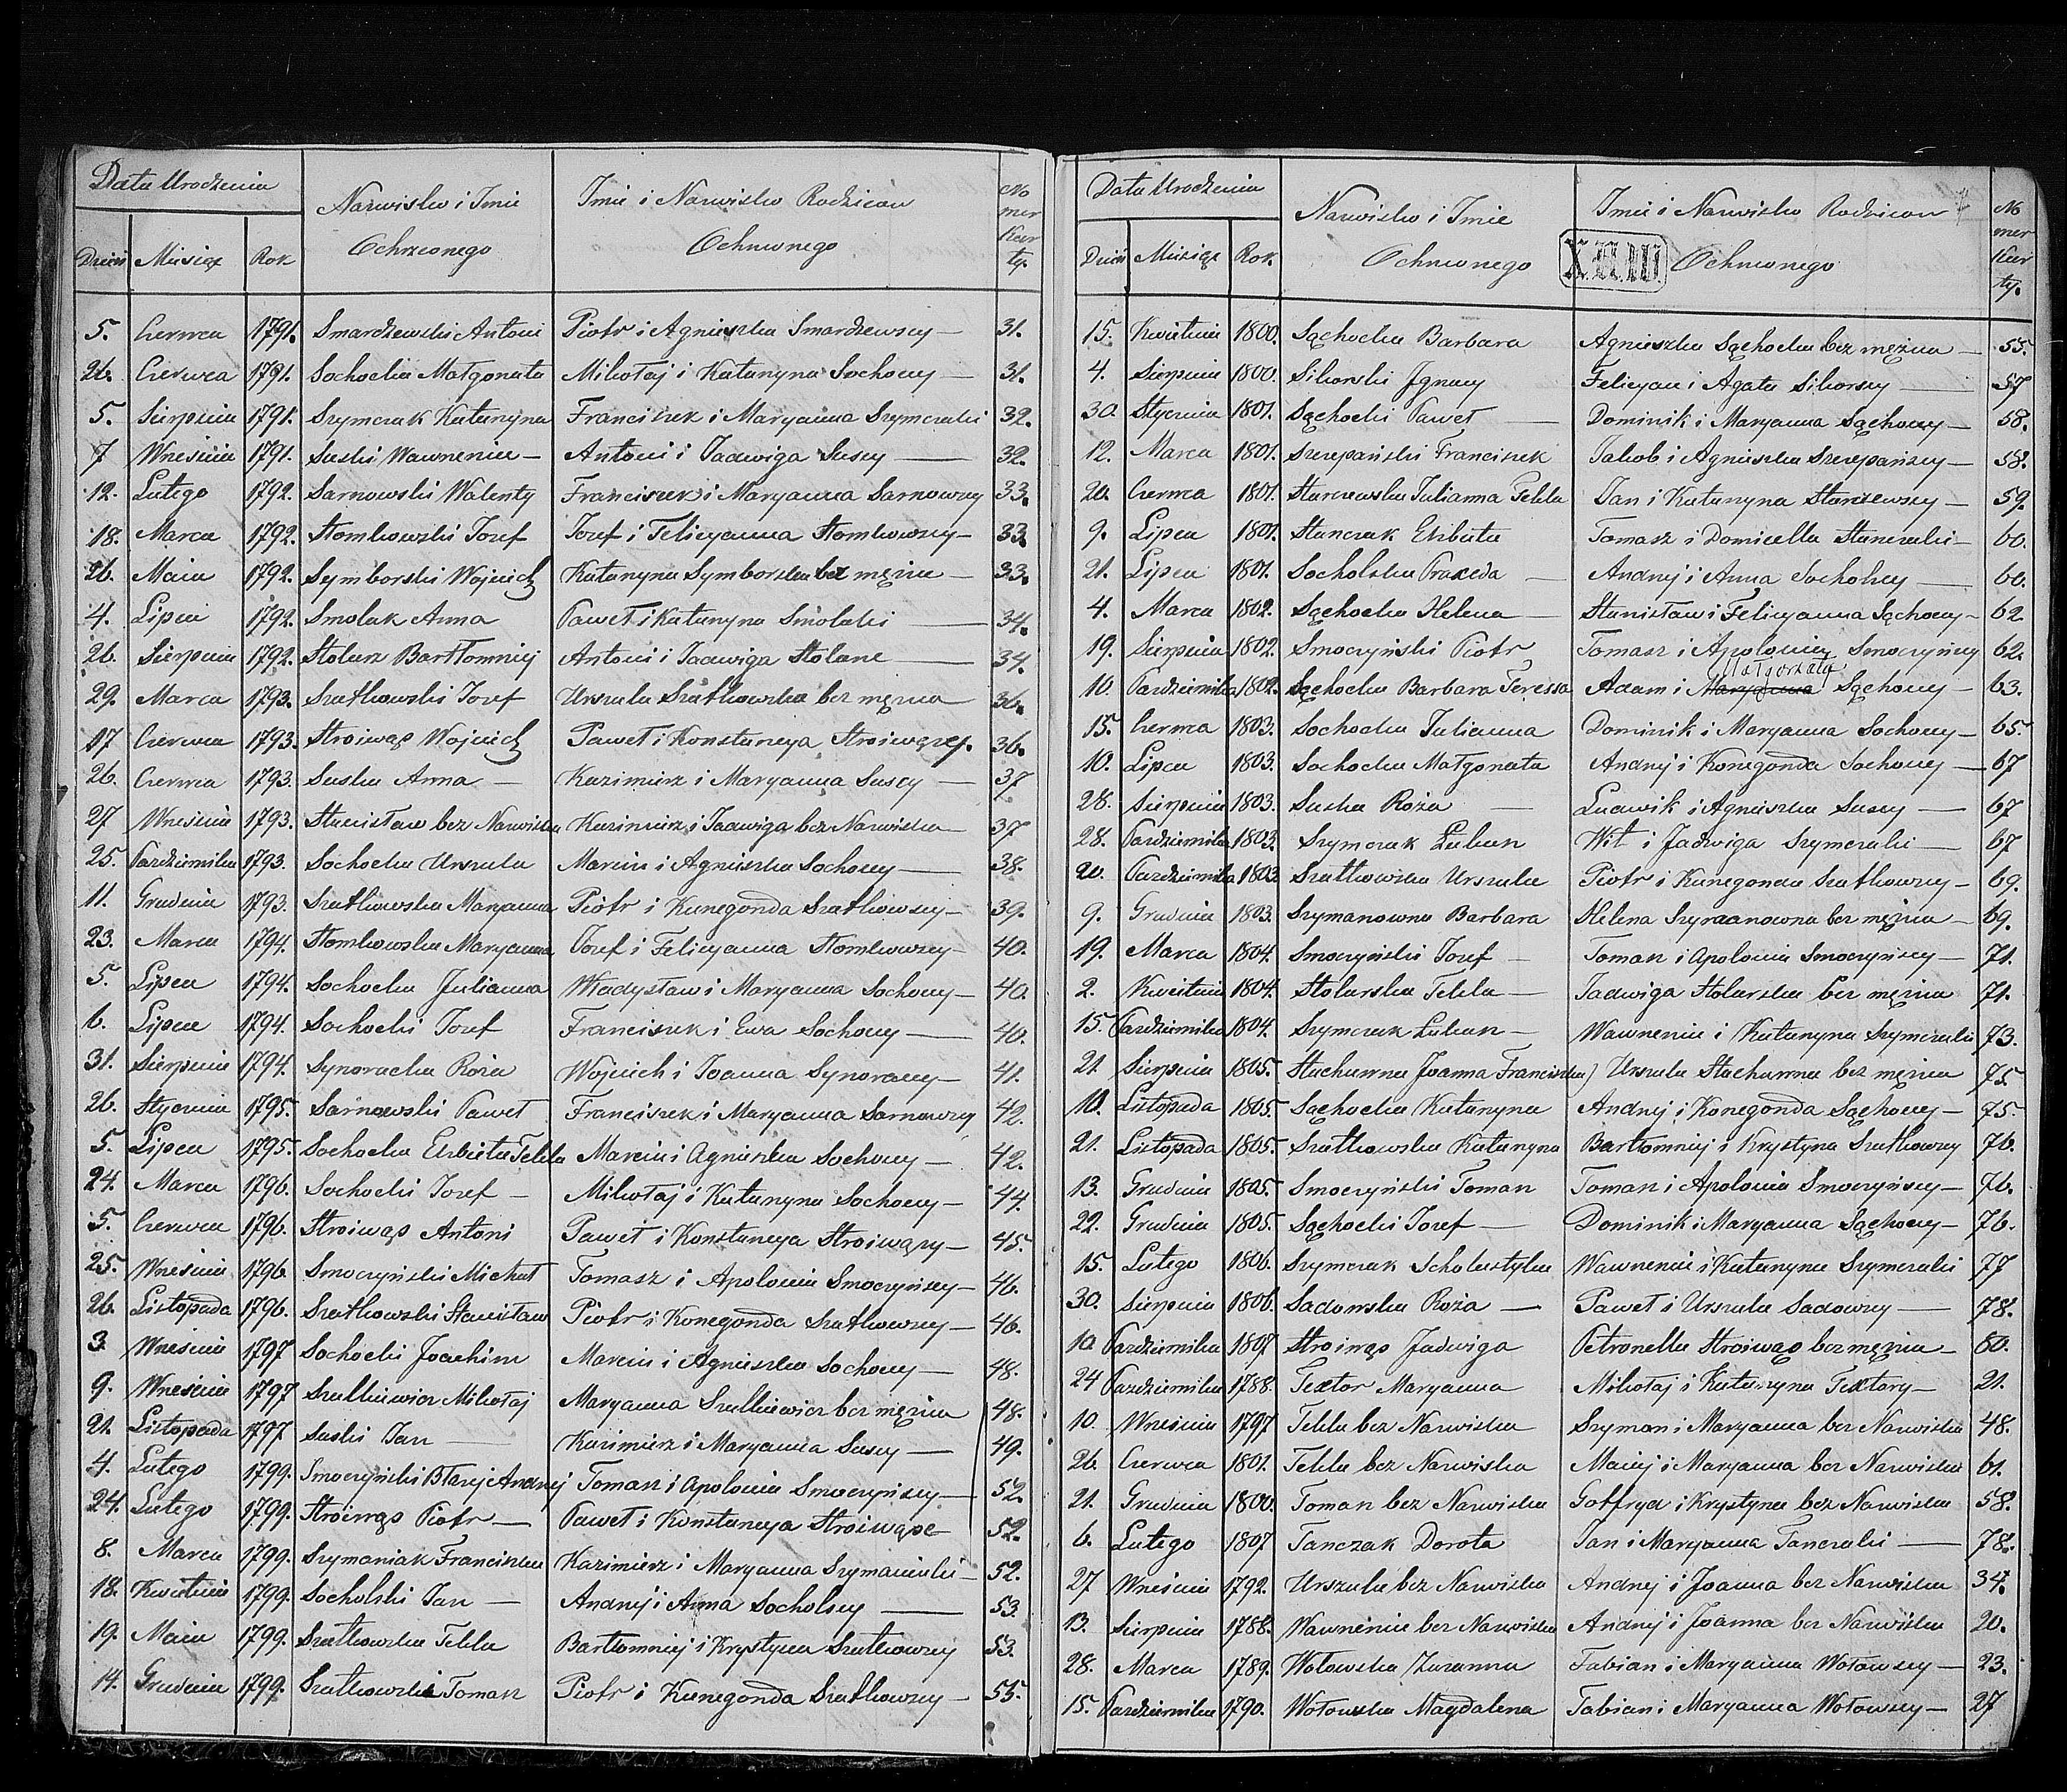 Data Urodzenia
Nazwisko i Imie Ochrzconego
Imie i Nazwisko Rodzicow Ochrzconego
No mer Kar ty.
Dzień Miesiąc Rok
5. Czerwca 1791. Smardzewski Antoni Piotr i Agnieszka Smardzewscy 31.
26. Czerwca 1791. Sochocka Małgorzata Mikołaj i Katarzyna Sochoccy 31.
5. Sierpnia 1791. Szymczak Katarzyna Franciszek i Maryanna Szymczaki 32.
7 Wrześnie 1791. Suski Wawrzeniec Antoni i Jadwiga Suscy 32.
12. Lutego 1792. Sarnowski Walenty Franciszek i Maryanna Sarnowscy 33.
18. Marca 1792. Stomkowski Jozef Jozef i Felicyanna Stomkowscy 33.
26. Maia 1792. Symborski Wojciech Katarzyna Symborska bez męża 33.
4. Lipca 1792. Smolak Anna Paweł i Katarzyna Smolaki 34.
26. Sierpnia 1792. Stolarz Bartłomiej Antoni i Jadwiga Stolarze 34.
29. Marca 1793. Szatkowski Jozef Urszula Szatkowska bez męża 36.
17 Czerwca 1793. Stroiwąs Wojciech Paweł i Konstancya Stroiwąsy. 36.
26. Czerwca 1793. Suska Anna Kazimierz i Maryanna Suscy 37
27 Wrześnie 1793. Stanisław bez Nazwiska Kazimierz i Jadwiga bez Nazwiska 37
25. Pazdziernika 1793. Sochocka Urszula Marcin i Agnieszka Sochoccy 38.
11. Grudnia 1793. Szatkowska Maryanna Piotr i Kunegonda Szatkowscy 39.
23. Marca 1794. Stomkowska Maryanna Jozef i Felicyanna Stomkowscy 40.
5. Lipca 1794. Sochocka Julianna Władysław i Maryanna Sochoccy 40.
6. Lipca 1794. Sochocki Jozef Franciszek i Ewa Sochoccy 40.
31. Sierpnia 1794. Synoracka Róża Wojciech i Joanna Synoraccy 41.
26. Stycznia 1795. Sarnowski Paweł Franciszek i Maryanna Sarnowscy 42.
5. Lipca 1795. Sochocka Elzbieta Tekla Marcin i Agnieszka Sochoccy 42.
24. Marca 1796. Sochocki Jozef Mikołaj i Katarzyna Sochoccy 44.
5. Czerwca 1796. Stroiwąs Antoni Paweł i Konstancya Stroiwąsy 45.
25. Wrześnie 1796 Smoczyński Michał Tomasz i Apolonia Smoczyńscy 46.
26. Listopada 1796. Szatkowski Stanisław Piotr i Konegonda Szatkowscy 46.
3 Wrześnie 1797 Sochocki Joachim Marcin i Agnieszka Sochoccy 48.
9. Wrześnie 1797 Szulkiewicz Mikołaj Maryanna Szulkiewicz bez męża 48.
21. Listopada 1797 Suski Jan Kazimierz i Maryanna Suscy 49.
4. Lutego 1799. Smoczyński Błażej Andrzej Tomasz i Apolonia Smoczyńscy 52.
24. Lutego 1799. Stroiwąs Piotr Paweł i Konstancya Stroiwąse 52.
8. Marca 1799. Szymaniak Franciszka Kazimierz i Maryanna Szymaniaki 52.
18. Kwietnia 1799. Socholski Jan Andrzej i Anna Socholscy 53.
19. Maia 1799. Szatkowska Tekla Bartłomiej i Krystyna Szatkowscy 53.
14. Grudnia 1799. Szatkowski Tomasz Piotr i Kunegonda Szatkowscy 55.
Data Urodzenia
Nazwisko i Imie Ochrzconego
Imie i Nazwisko Rodzicow Ochrzconego
7
X.II.III.
No mer Kar ty.
Dzień Miesiąc Rok.
15. Kwietnia 1800. Sąchocka Barbara Agnieszka Sąchocka bez męża 55.
4. Sierpnia 1800. Sikorski Jgnacy Felicyan i Agata Sikorscy 57
30. Stycznia 1801. Sąchocki Paweł Dominik i Maryanna Sąchoccy 58.
12. Marca 1801. Szczepański Franciszek Jakob i Agnieszka Szczepańscy 58.
20. Czerwca 1801. Starzewska Julianna Tekla Jan i Katarzyna Starzewscy 59.
9. Lipca 1801. Stanczak Elzbieta Tomasz i Domicella Stanczaki 60.
21. Lipca 1801. Socholska Praxeda Andrzej i Anna Socholscy 60.
4. Marca 1802. Sąchocka Helena Stanisław i Felicyanna Sąchoccy 62
19. Sierpnia 1802. Smoczyński Piotr Tomasz i Apolonia Smoczyńscy 62.
10. Pazdziernika 1802. Sąchocka Barbara Teressa Adam i Maryanna Małgorzata Sąchoccy 63.
15. Czerwca 1803. Sochocka Julianna Dominik i Maryanna Sochoccy 65.
10. Lipca 1803. Sochocka Małgorzata Andrzej i Konegonda Sochoccy 67
28. Sierpnia 1803. Suska Roża Ludwik i Agnieszka Suscy 67
28. Pazdziernika 1803. Szymczak Łukasz Wit i Jadwiga Szymczaki 67
20. Pazdziernika 1803. Szatkowska Urszula Piotr i Kunegonda Szatkowscy 69.
9. Grudnia 1803. Szymanowna Barbara Helena Szymanowna bez męża 69.
19. Marca 1804. Smoczyński Jozef Tomasz i Apolonia Smoczyńscy 71.
2. Kwietnia 1804. Stolarska Tekla Jadwiga Stolarska bez męża 71.
15. Pazdziernika 1804. Szymczak Łukasz Wawrzeniec i Katarzyna Szymczaki 73.
21 Sierpnia 1805. Stachurna Joanna Franciszka Urszula Stachurna bez męża 75.
10. Listopada 1805. Sąchocka Katarzyna Andrzej i Konegonda Sąchoccy 75.
21. Listopada 1805. Szatkowska Katarzyna Bartłomiej i Krystyna Szatkowscy 76.
13. Grudnia 1805. Smoczyński Tomasz Tomasz i Apolonia Smoczyńscy 76.
22. Grudnia 1805. Sąchocki Jozef Dominik i Maryanna Sąchoccy 76.
15. Lutego 1806. Szymczak Scholastyka Wawrzeniec i Katarzyna Szymczaki 77
30. Sierpnia 1806. Sadowska Roża Paweł i Urszula Sadowscy 78.
10 Pazdziernika 1807 Stroiwąs Jadwiga Petronella Stroiwąs bez męża 80.
24 Pazdziernika 1788. Textor Maryanna Mikołaj i Katarzyna Textory 21.
10. Wrześnie 1797 Tekla bez Nazwiska Szymon i Maryanna bez Nazwiska 48.
26. Czerwca 1801. Tekla bez Nazwiska Maciej i Maryanna bez Nazwiska 61.
21. Grudnia 1800. Tomasz bez Nazwiska Gotfryd i Krystyna bez Nazwiska 58.
6. Lutego 1807 Tanczak Dorota Jan i Maryanna Tanczaki 78.
27 Wrześnie 1792. Urszula bez Nazwiska Andrzej i Joanna bez Nazwiska 34.
13. Sierpnia 1788. Wawrzeniec bez Nazwiska Andrzej i Joanna bez Nazwiska 20.
28. Marca 1789. Wołowska Zuzanna Fabian i Maryanna Wołowscy 23.
15. Pazdziernika 1790. Wołowska Magdalena Fabian i Maryanna Wołowscy 27